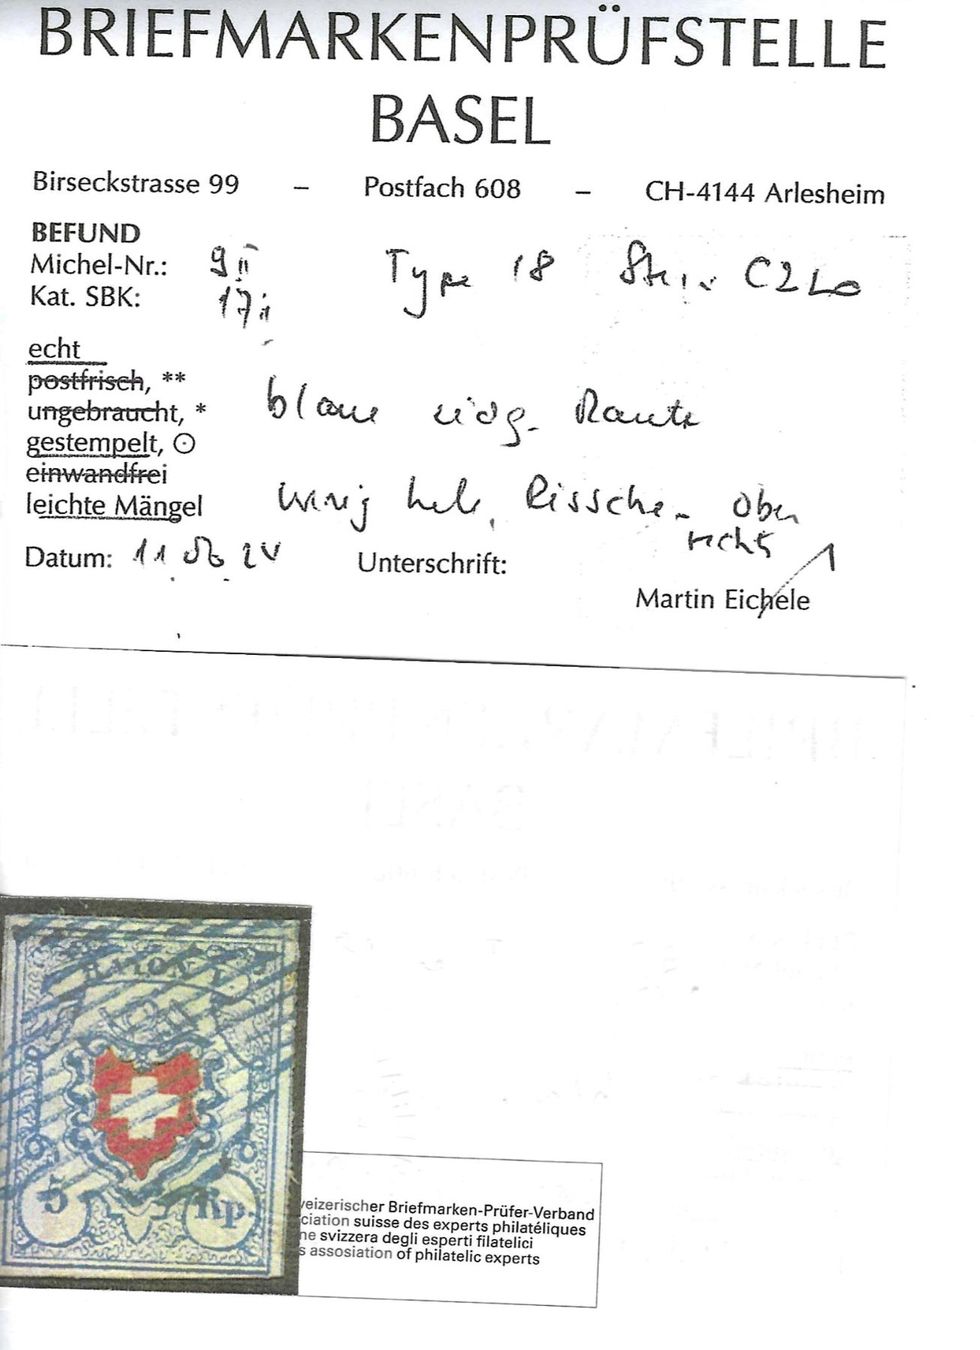 BRIEFMARKENPRÜFSTELLE
BASEL
Birseckstrasse 99 – Postfach 608 – CH-4144 Arlesheim
BEFUND
Michel-Nr.: 9 II Type 18 Stein C2 LO
Kat. SBK: 17 ii
echt
postfrisch, **
ungebraucht, * blaue eidg. Raute
gestempelt, ⊙
einwandfrei
leichte Mängel wenig helle, Risschen oben
rechts
Datum: 11 06 24 Unterschrift:
Martin Eichele
RAYON I
5 Rp.
veizerischer Briefmarken-Prüfer-Verband
ciation suisse des experts philatéliques
ne svizzera degli esperti filatelici
s assosiation of philatelic experts